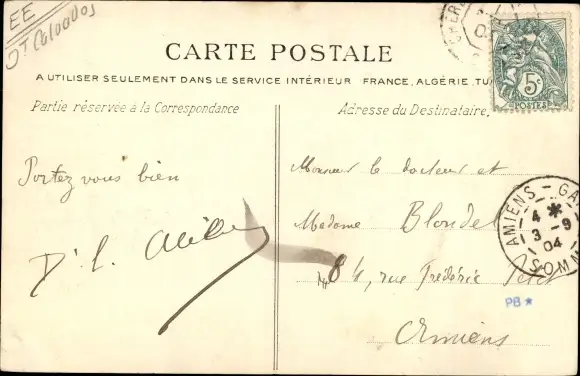 EE
Dt Calvados
CARTE POSTALE
A UTILISER SEULEMENT DANS LE SERVICE INTÉRIEUR FRANCE, ALGÉRIE, TU
Partie réservée à la Correspondance
Adresse du Destinataire.
5c
POSTES
Portez vous bien
Monsieur le docteur et
Madame Blondel
rue Frédéric Petit
Amiens
AMIENS - GA
4 *
3 - 9
04
SOMM
PB *